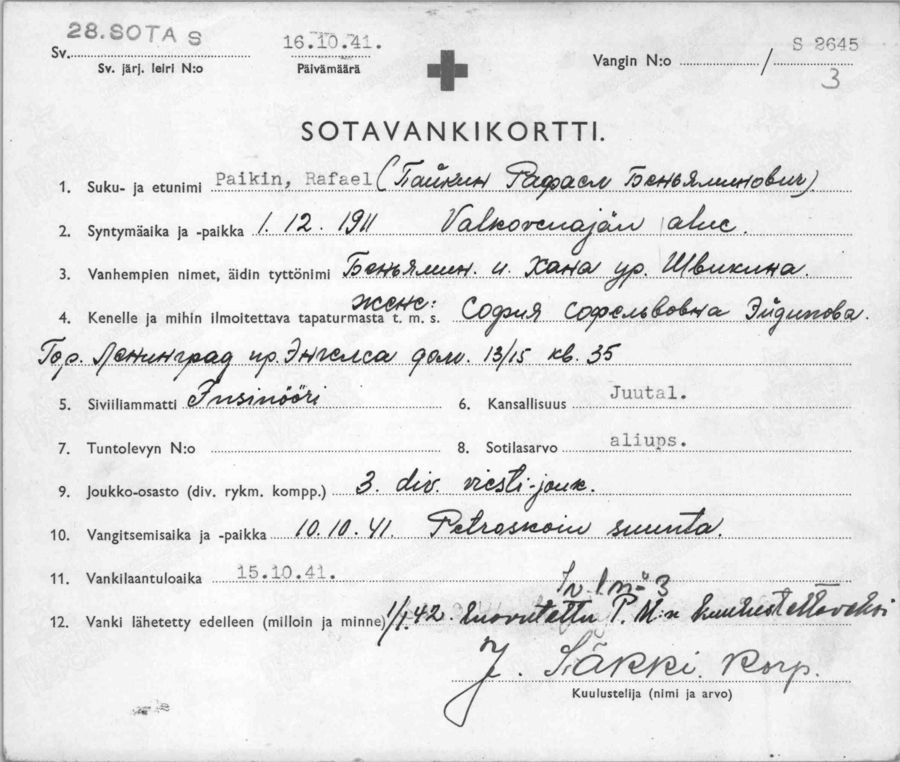 28.SOTA S
Sv.
Sv. järj. leiri N:o
16.10.41.
Päivämäärä
Vangin N:o / S 2645
3
SOTAVANKIKORTTI.
1. Suku- ja etunimi Paikin, Rafael (Пайкин Рафаел Беньяминович)
2. Syntymäaika ja -paikka 1. 12. 1911 Valkovenäjän alue.
3. Vanhempien nimet, äidin tyttönimi Беньямин. и. Хана ур. Швикина.
жене:
4. Kenelle ja mihin ilmoitettava tapaturmasta t. m. s. София
Гор. Ленинград пр. Энгелса дом. 13/15 кв. 35
5. Siviiliammatti Insinööri 6. Kansallisuus Juutal.
7. Tuntolevyn N:o 8. Sotilasarvo aliups.
9. Joukko-osasto (div. rykm. kompp.) 3. div. viesti-jouk.
10. Vangitsemisaika ja -paikka 10.10.41. Petroskoin suunta.
11. Vankilaantuloaika 15.10.41.
12. Vanki lähetetty edelleen (milloin ja minne) 1/1.42. luovutettu P.M:n kuulusteltavaksi
J. Särkki. Korp.
Kuulustelija (nimi ja arvo)